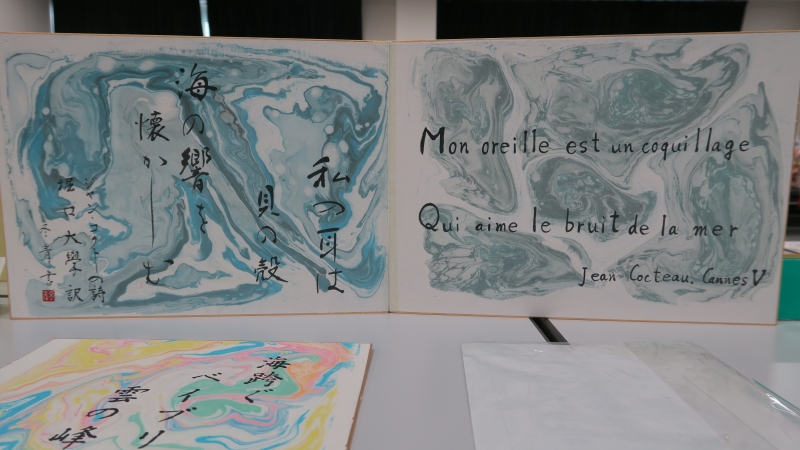 私の耳は
貝の殻
海の響を
懐かしむ
ジャンコクトーの詩
堀口大學訳
Mon oreille est un coquillage
Qui aime le bruit de la mer
Jean Cocteau. Cannes V
海跨ぐ
ベイブリ
雲の峰